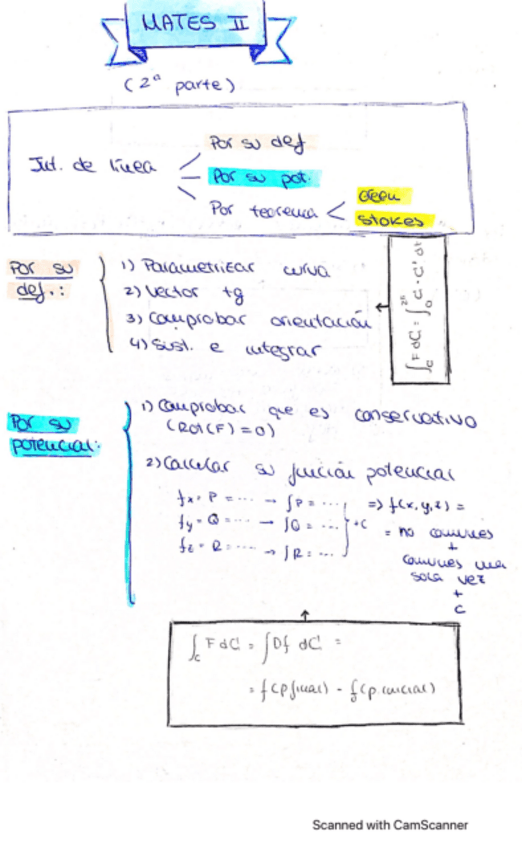 MATES II
(2ª parte)
Int. de línea
Por su def
Por su pot.
Por teorema < Green
Stokes
Por su def.:
1) Parametrizar curva
2) Vector tg
3) Comprobar orientación
4) Sust. e integrar
∫_C F dC = ∫_0^{2π} C · C' dt
Por su potencial:
1) Comprobar que es conservativo
(Rot(F) = 0)
2) Calcular su función potencial
fx = P = ... → ∫P = ...
fy = Q = ... → ∫Q = ...
fz = R = ... → ∫R = ...
+C
=> f(x,y,z) =
= no comunes
+
comunes una
sola vez
+
C
∫_C F dC = ∫Df dC =
= f(p.final) - f(p.inicial)
Scanned with CamScanner